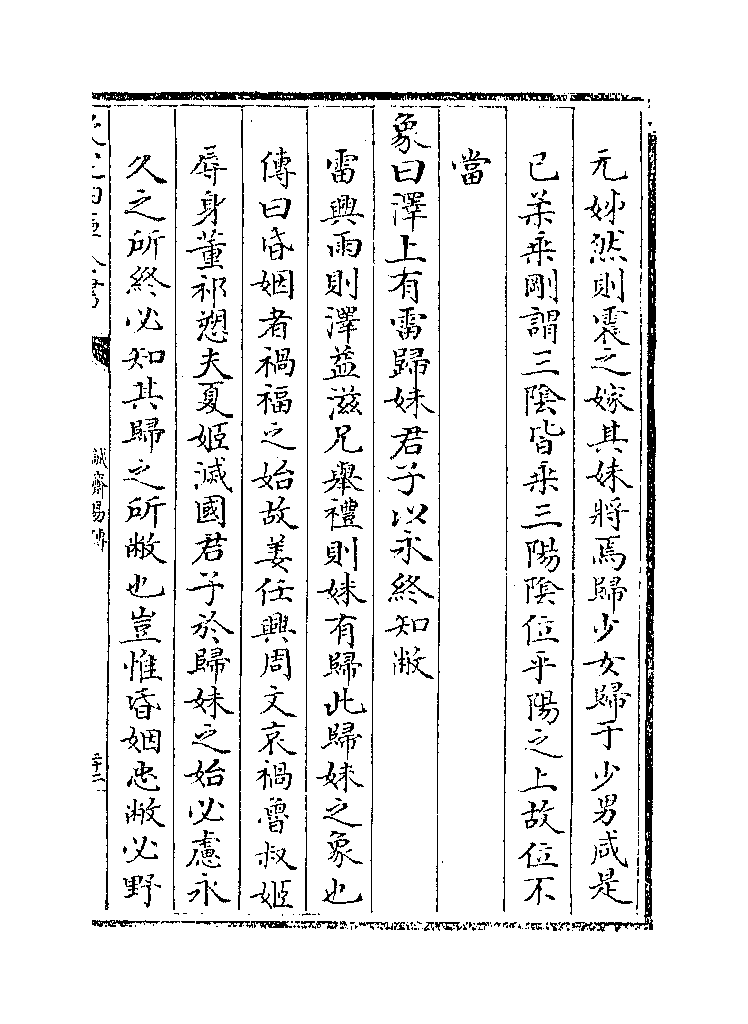 元妹然則震之嫁其妹將焉歸少女歸于少男咸是
已柔乗剛謂三陰皆乗三陽陰位乎陽之上故位不
當
象曰澤上有雷歸妹君子以永終知敝
雷興雨則澤益滋兄舉禮則妹有歸此歸妹之象也
傳曰昏姻者禍福之始故姜任興周文哀禍魯叔姬
辱身董祁愬夫夏姬滅國君子於歸妹之始必慮永
久之所終必知其歸之所敝也豈惟昏姻忠敝必野
誠齋易傳